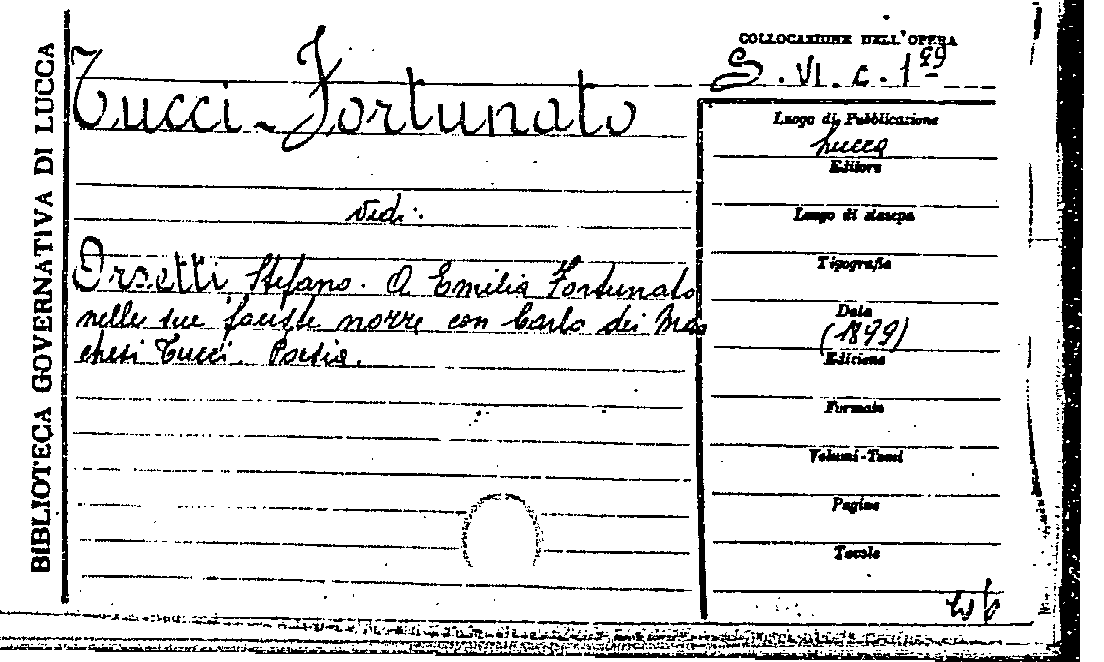 BIBLIOTECA GOVERNATIVA DI LUCCA
COLLOCAZIONE DELL'OPERA
S. VI. c. 1 99
Tucci-Fortunato
vedi:
Orsetti Stefano. A Emilia Fortunato
nelle sue fauste nozze con Carlo dei Mar
chesi Tucci. Poesia.
Luogo di Pubblicazione
Lucca
Editore
Luogo di stampa
Tipografia
Data
(1899)
Edizione
Formato
Volumi-Tomi
Pagine
Tavole